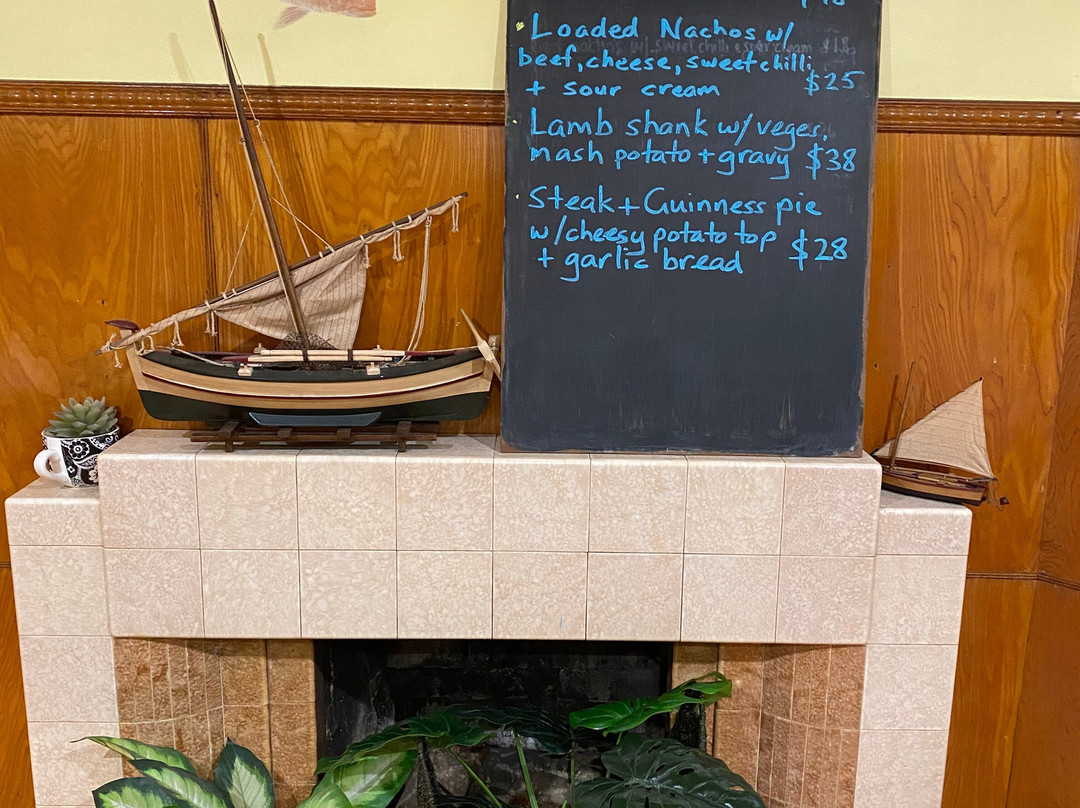 Loaded Nachos w/
beef, cheese, sweet chilli
+ sour cream $25
Lamb shank w/ veges,
mash potato + gravy $38
Steak + Guinness pie
w/ cheesy potato top
+ garlic bread $28